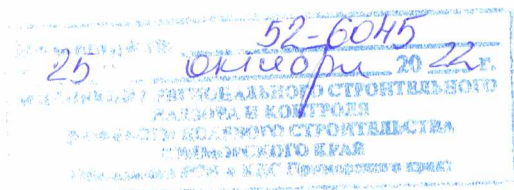 52-6045
25 октября 2022 г.
РЕГИОНАЛЬНОГО СТРОИТЕЛЬНОГО
НАДЗОРА И КОНТРОЛЯ
В ОБЛАСТИ ДОЛЕВОГО СТРОИТЕЛЬСТВА
ПРИМОРСКОГО КРАЯ
Приморского края)